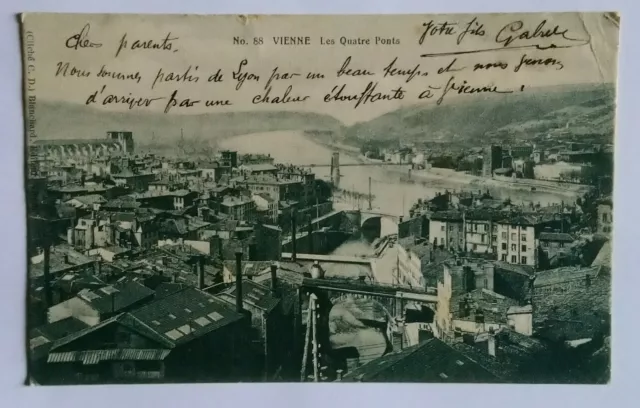 No. 88 VIENNE Les Quatre Ponts
Chers parents.
Nous sommes partis de Lyon par un beau temps et nous venons
d'arriver par une chaleur étouffante à Vienne.
Votre fils Gabriel
(Cliché C. D.) Blanchard